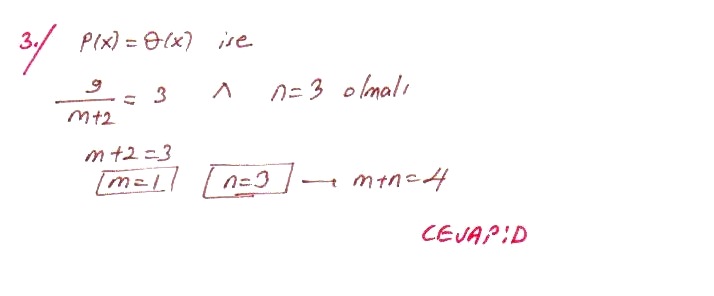 3./ P(x) = Q(x) ise
9/(m+2) = 3 ∧ n=3 olmalı
m+2=3
m=1 n=3 → m+n=4
CEVAP:D